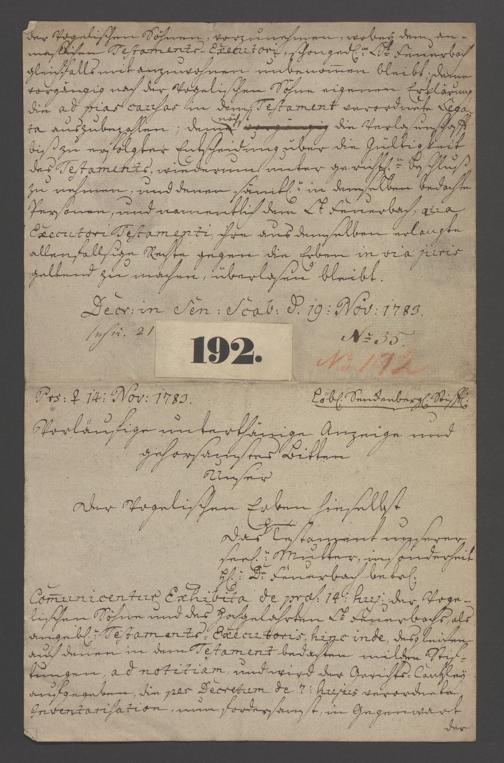 der Vogelischen Söhnen, vorzunehmen, wobey dem an-
maßlichen Testaments Executori, Lt. Feuerbach
gleichfalls mit anzuwohnen unbenommen bleibt; dann
vorgängig nach der Vogelischen Söhne eigenen Erklärung
die ad pias causas in dem Testament verordnete Lega-
ta auszubezahlen; die Verlassenschaft
biß zu erfolgter Entscheidung über die Gültigkeit
des Testaments, wiederum unter gerichtl:n Beschluß
zu nehmen, und denen sämtl: in demselben bedachten
Personen, und namentlich dem Lt. Feuerbach, qua
Executori Testamenti, ihre aus demselben erlangte
allenfallsige Rechte gegen die Erben in via juris
geltend zu machen, überlaßen bleibt.
Decr: in Sen: Scab: d. 19: Nov: 1783.
21
No 35.
192.
No 192
Prs: 14: Nov: 1783.
Löbl. Senckenbergl. Stifft.
Vorläufige unterthänige Anzeige und
gehorsamstes Bitten
Unser
Der Vogelischen Erben hieselbst
Das Testament unserer
seel: Mutter, insonderheit
H: Dr. Feuerbach betr:
Communicentur Exhibita de prs. 14: huj: der Voge-
lischen Söhne und des Hochgelahrten Lt. Feuerbachs, als
angebl: Testaments Executoris, hinc inde, desgleichen
auch denen in dem Testament bedachten milden Stif-
tungen, ad notitiam, und wird der Gerichts-Cantzley
aufgegeben, die per Decretum de 7: hujus verordnete
Inventarisation, nun fordersamst, in Gegenwart
der